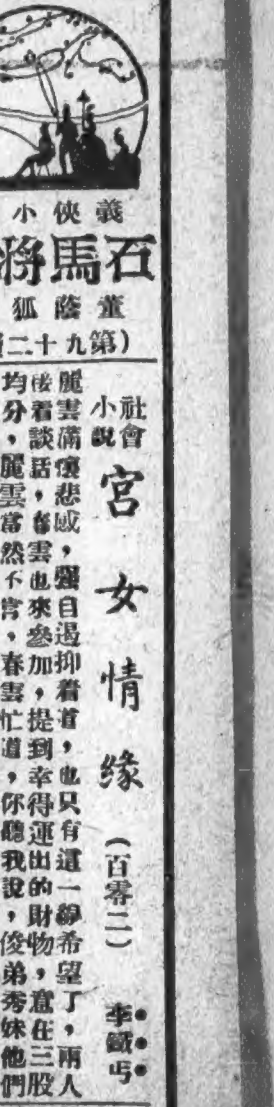 義俠小
石馬將
董蔭狐
(第九十二
社會
小說
宮女情緣
(百零二)
李鐵丐
麗雲滿懷悲感，強自遏抑着道，也只有這一線希望了，兩人
後看談話，春雲也來參加，提到幸得運出的財物，意在三股
均分，麗雲當然不肯，春雲忙道，你聽我說，俊弟秀妹他們